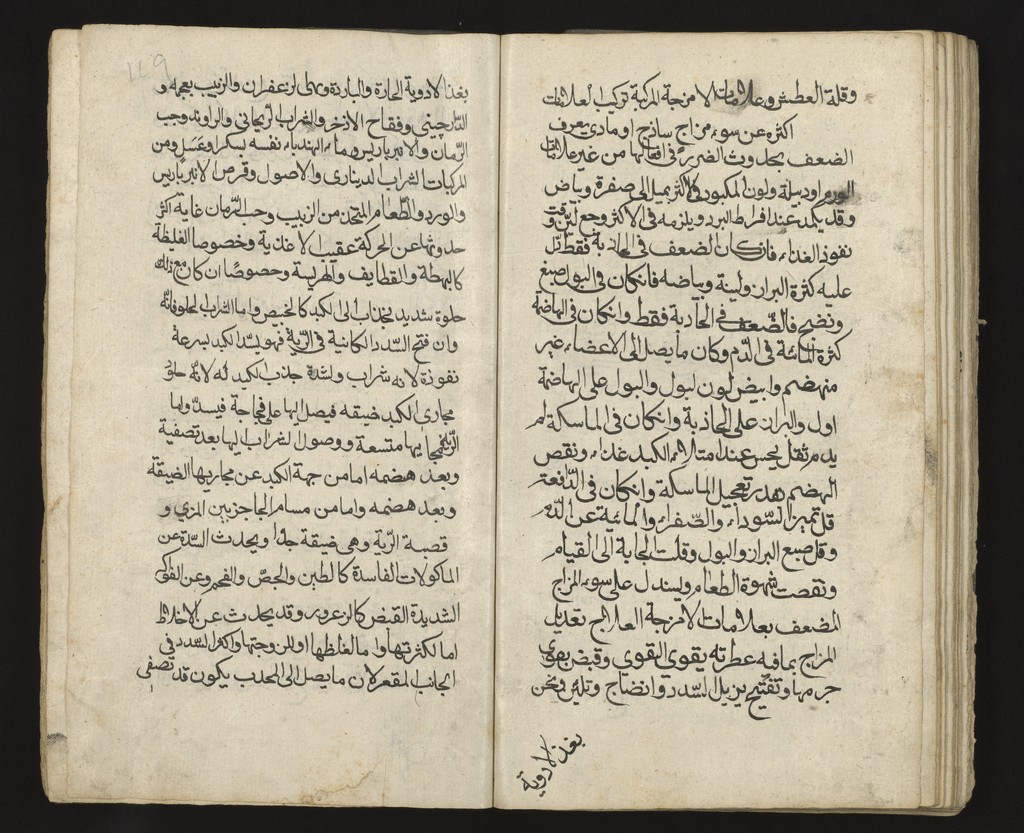 وقلة العطش وعلامات الامزجة المركبة تركيب العلامات
اكثره عن سوء مزاج ساذج او مادي يعرف
الضعف بحدوث الضرر في افعالها من غير علامات
الورم او دبيلة ولون المكبود في الاكثر يميل الى صفرة وبياض
وقد يكمد عند افراط البرد ويلزمه في الاكثر وجع لين وقت
نفوذ الغذاء فان كان الضعف في الجاذبة فقط دل
عليه كثرة البراز ولينه وبياضه فان كان في البول صبغ
ونضج فالضعف في الجاذبة فقط وان كان في الهاضمة
كثرة المائية في الدم وكان ما يصل الى الاعضاء غير
منهضم وابيض لون البول والبول على الهاضمة
اول والبراز على الجاذبة وان كان في الماسكة لم
يدم ثقل يحس عند امتلاء الكبد غذاء ونقص
الهضم بقدر تعجيل الماسكة وان كان في الدافعة
قل تميز السوداء والصفراء والمائية عن الدم
وقل صبغ البراز والبول وقلت الحاجة الى القيام
ونقصت شهوة الطعام ويستدل على سوء المزاج
المضعف بعلامات الامزجة العلاج تعديل
المزاج بما فيه عطرته يقوي القوى وقبض يقوى
جرمها وتفتيح يزيل السدد وانضاج وتليين ونحن
بغذ الادوية
بغذ الادوية الحارة والباردة وهي الزعفران والزبيب بعجمه و
الدارچيني وفقاح الاذخر والشراب الريحاني والراوند وحب
الرمان والانبرباريس وماء الهندباء نفسه بسكر او عسل ومن
المركبات الشراب الديناري والاصول وقرص الانبرباريس
والورد والطعام المتخذ من الزبيب وحب الرمان غاية اكثر
حدوثها عن الحركة عقيب الاغذية وخصوصا الغليظة
كالبهطة والقطايف والهريسة وخصوصا ان كان مع ذلك
حلوة شديد الجذب الى الكبد كالخبيص واما الشراب الحلو فانه
وان فتح السدد الكائنة في الرية فهو يسد الكبد لسرعة
نفوذه لانه شراب ولشدة جذب الكبد له لانه حلو
مجاري الكبد ضيقه فيصل اليها على فجاجة فيسد واما
الرية فمجاريها متسعة ووصول الشراب اليها بعد تصفية
وبعد هضمه اما من جهة الكبد عن مجاريها الضيقة
وبعد هضمه واما من مسام الحاجز بين المري و
قصبة الرية وهي ضيقة جدا ويحدث السدة عن
الماكولات الفاسدة كالطين والجص والفحم وعن الفواكه
الشديدة القبض كالزعرور وقد يحدث عن الاخلاط
اما لكثرتها واما لغلظها او للزوجتها واكثر السدد في
الجانب المقعر لان ما يصل الى المحدب يكون قد تصفى